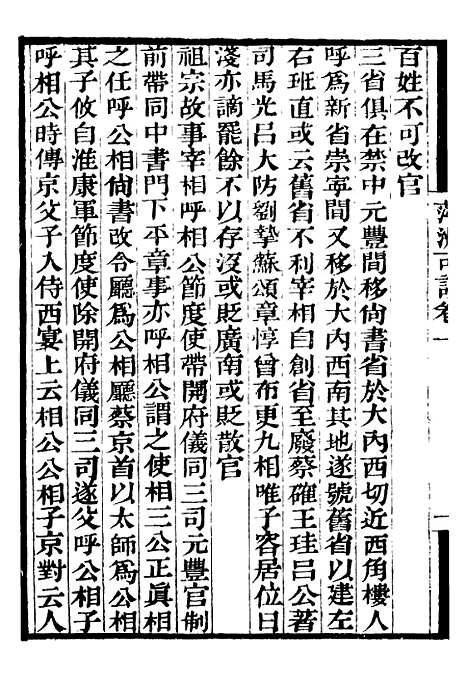 萍洲可談卷一
一
百姓不可改官
三省俱在禁中元豐間移尙書省於大內西切近西角樓人
呼爲新省崇寧間又移於大內西南其地遂號舊省以建左
右班直或云舊省不利宰相自創省至廢蔡確王珪呂公著
司馬光呂大防劉摯蘇頌章惇曾布更九相唯子容居位日
淺亦謫罷餘不以存沒或貶廣南或貶散官
祖宗故事宰相呼相公節度使帶開府儀同三司元豐官制
前帶同中書門下平章事亦呼相公謂之使相三公正眞相
之任呼公相尙書改令廳爲公相廳蔡京首以太師爲公相
其子攸自淮康軍節度使除開府儀同三司遂父呼公相子
呼相公時傳京父子入侍西宴上云相公公相子京對云人